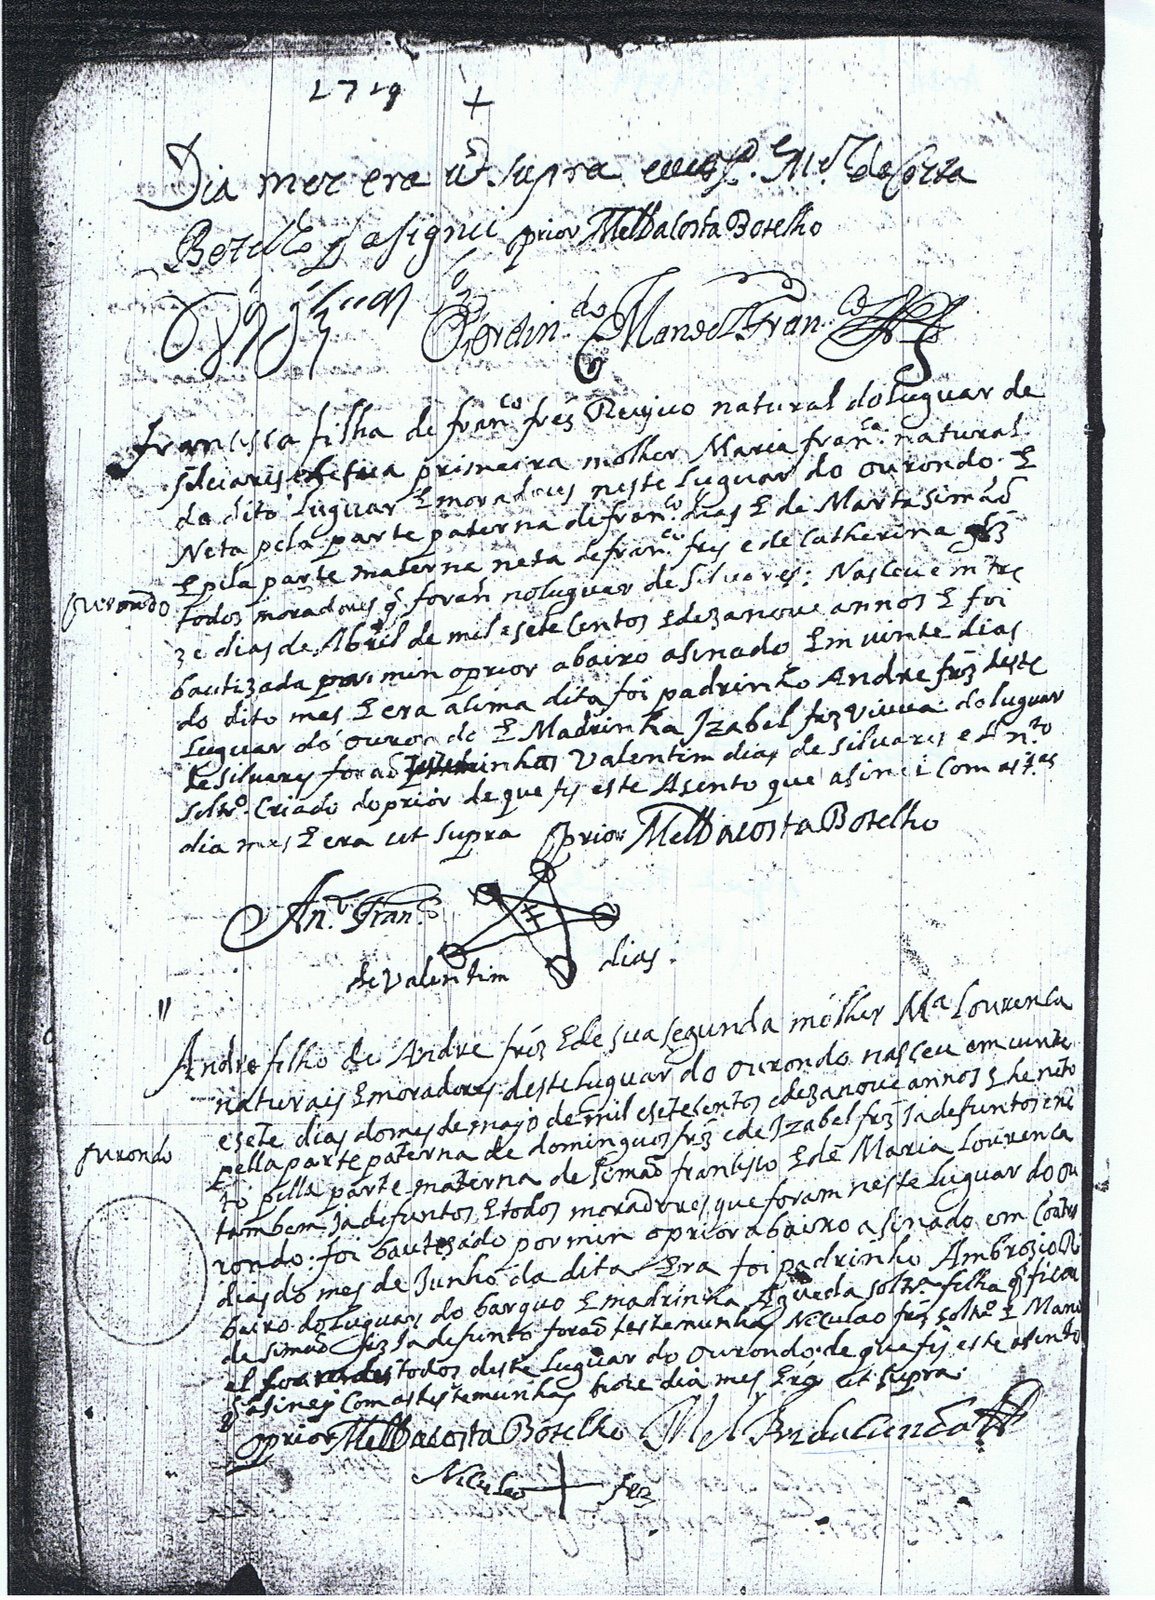 1719
Dia mez era ut supra M.el da Costa
Botelho asignei prior M.el da Costa Botelho
Manoel Fran.co
Francisca filha de fran.co frz Reyjuo natural do luguar de
silvares e de sua primeira molher Maria fran.ca natural
do dito luguar E moradores neste luguar do ourondo. E
Neta pela parte paterna de fran.co dias E de Marta simão
E pela parte materna neta de fran.co frz e de Catherina
ourondo
todos moradores q̃ forão no luguar de Silvares; Nasceu em tre
ze dias de Abril de mil e sete Centos E dezanove annos E foi
bautizada por min o prior abaixo asinado Em vinte dias
do dito mes E era asima dita foi padrinho Andre frz deste
luguar do ourondo E Madrinha Izabel frz viuva do luguar
de silvares forão testeminhas Valentim dias de silvares e
solt.ro Criado do prior de que fis este Asento que asinei com as t.as
dia mes E era ut supra O prior M.el da Costa Botelho
An.to Fran.co
de Valentim dias.
Andre filho de Andre frz E de sua segunda molher M.a Lourenca
naturais E moradores deste luguar do ourondo nasceu em vinte
e sete dias do mes de mayo de mil e sete centos e dezanove annos E he neto
ourondo
pella parte paterna de dominguos frz e de Izabel frz Ja defuntos e ne
to pella parte materna de Simão francisco E de Maria Lourenca
tambem Ja defuntos E todos moradores que foram neste luguar do ou
rondo. foi bautisado por min o prior abaixo asinado em coatro
dias do mes de Junho da dita Era foi padrinho Ambrozio Ri
bairo do luguar do barquo E madrinha Agueda solt.ra filha q̃ ficou
de simão frz Ja defunto forão testemunhas Niculao frz solt.ro E Mano
el todos deste luguar do ourondo. de que fis este asento
q̃ asinej com as testemunhas hoie dia mes Era ut supra
o prior M.el da Costa Botelho
Niculao frz